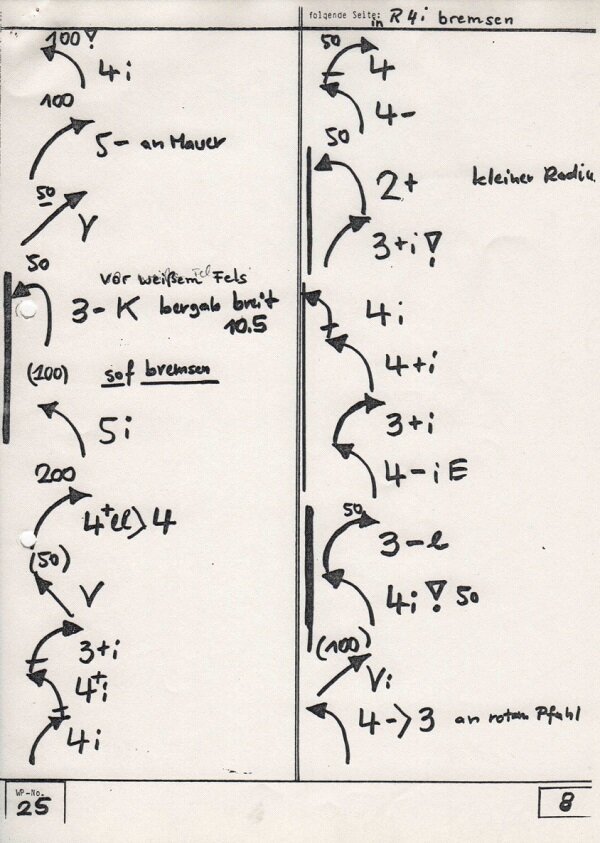 folgende Seite: in R4i bremsen
100!
4i
100
5- an Mauer
50
V
50
vor weißem Fels
3-K bergab breit
10.5
(100) sof bremsen
5i
200
4+ll>4
(50)
V
3+i
4+i
4i
WP-No.
25
50
4
4-
50
2+ kleiner Radiu
3+i!
4i
4+i
3+i
4-iE
50
3-l
4i! 50
(100)
Vi
4->3 an rotem Pfahl
8